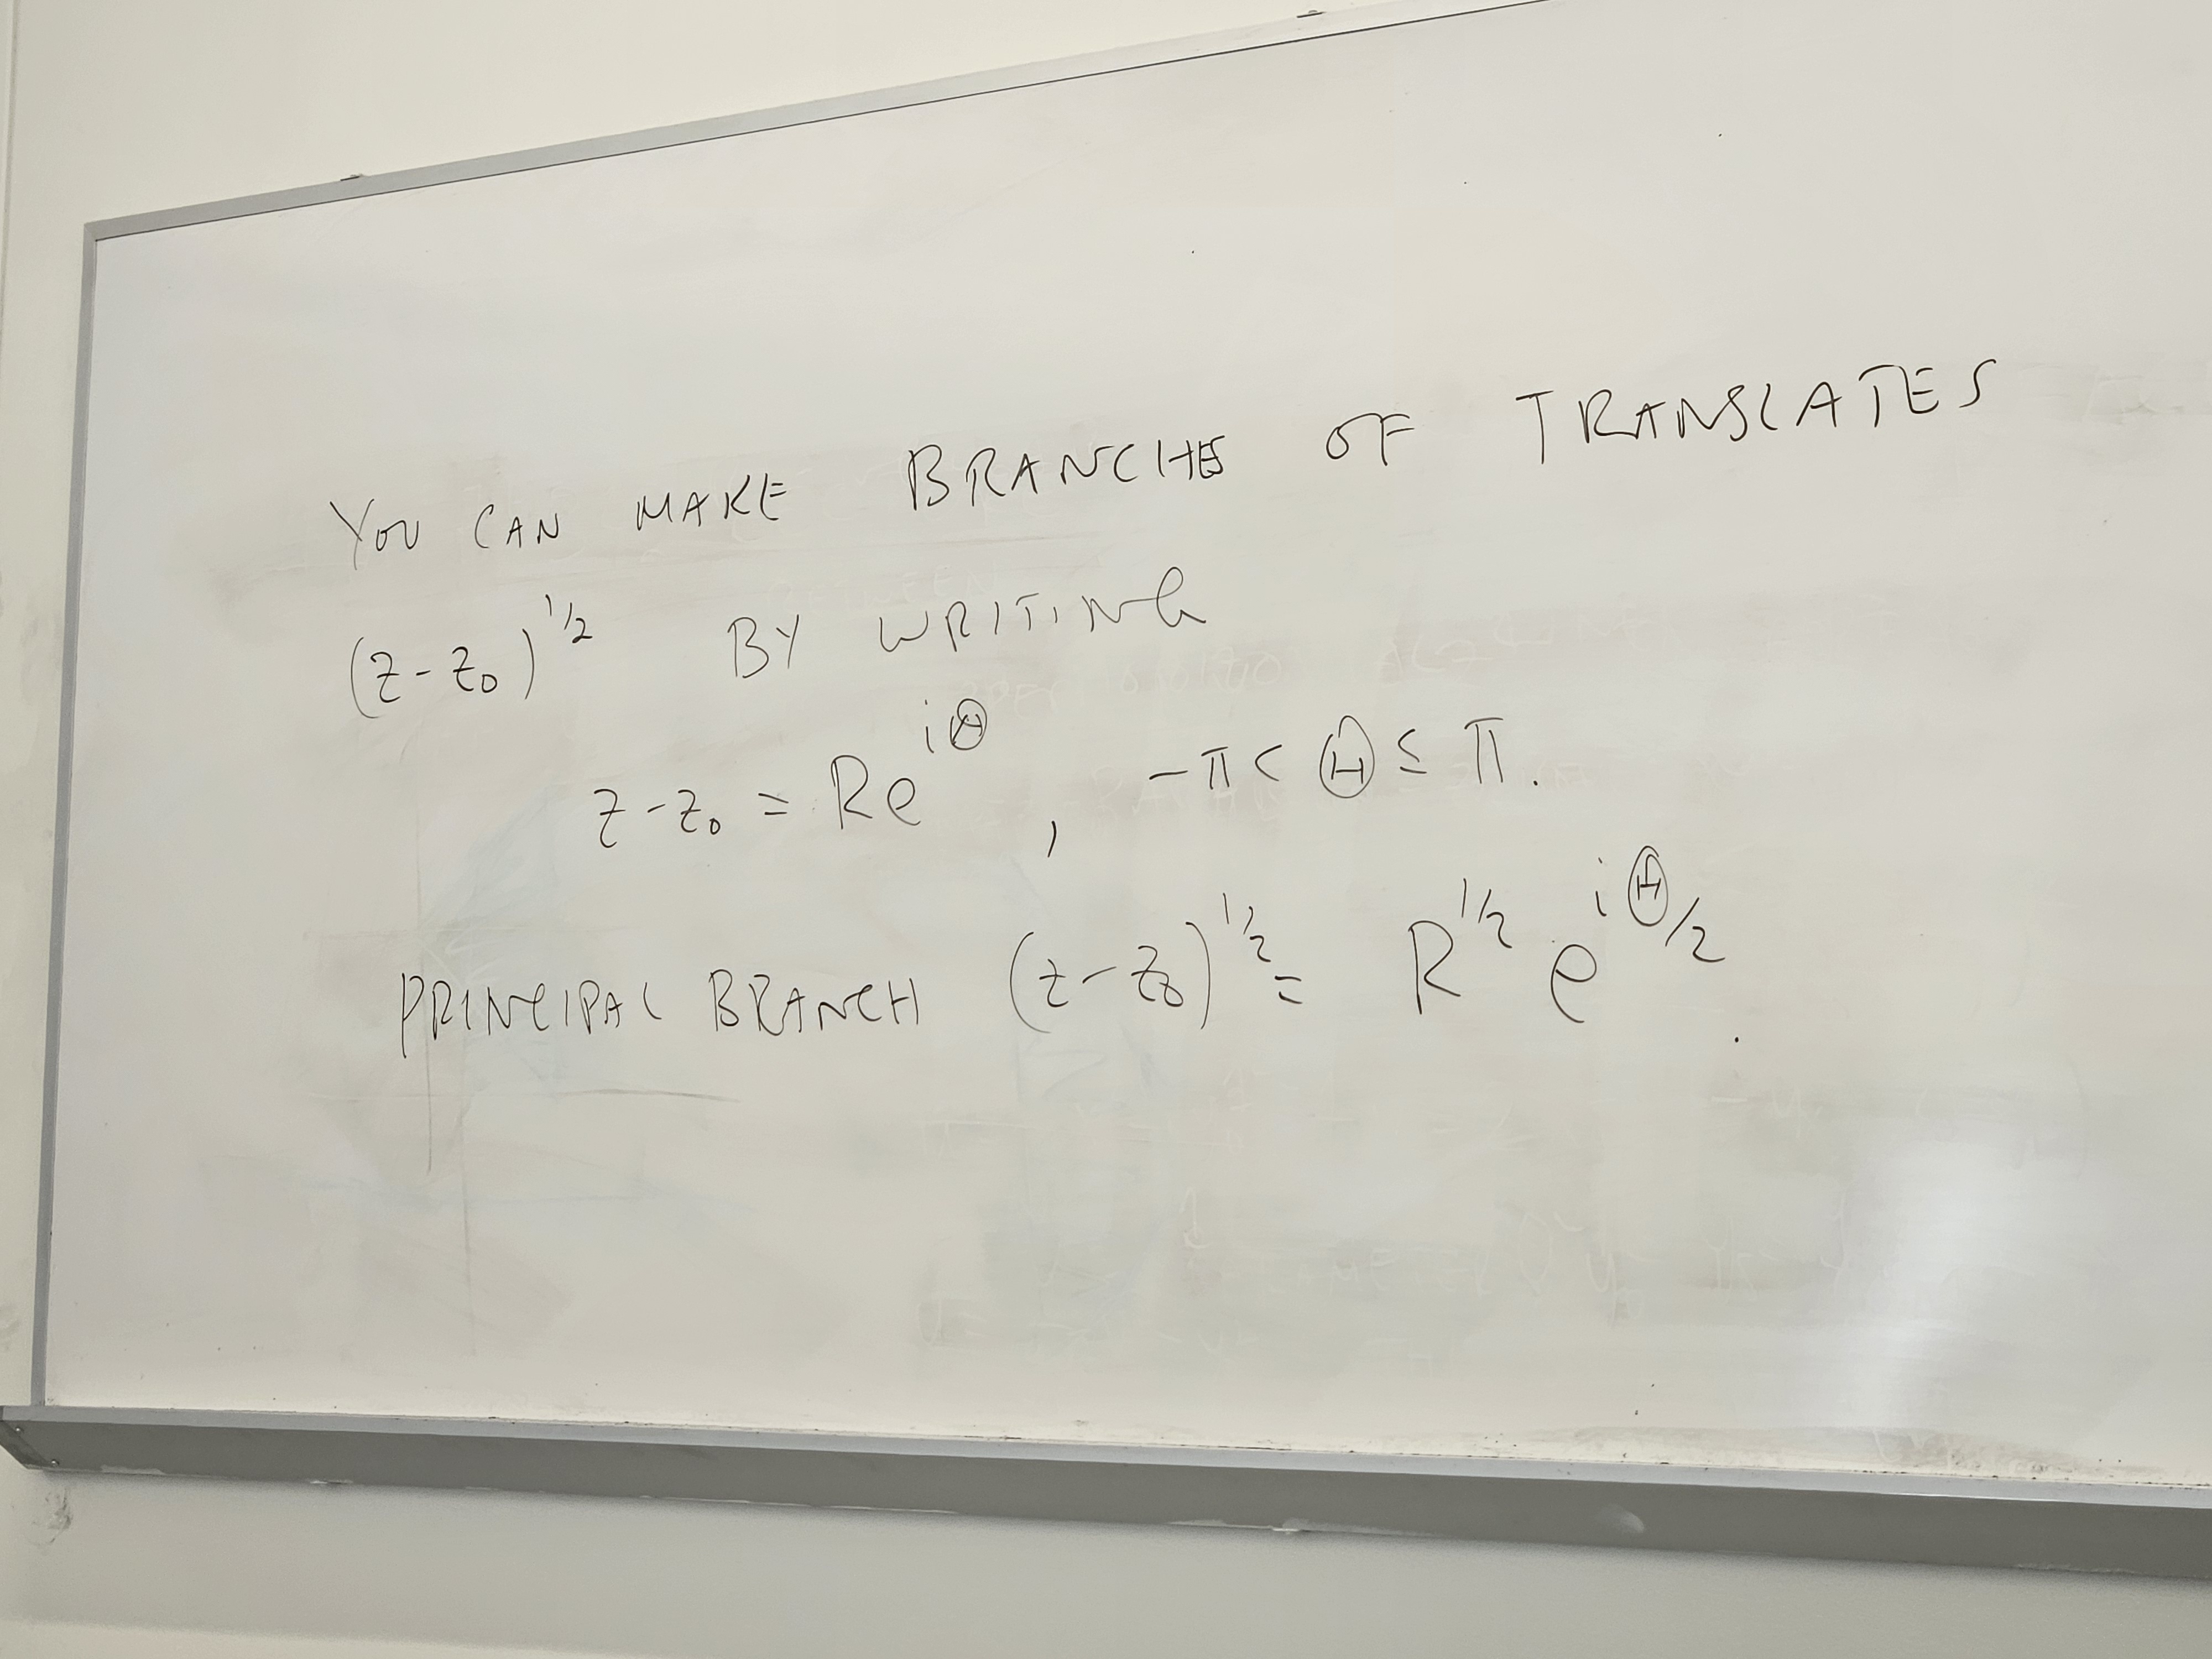 YOU CAN MAKE BRANCHES OF TRANSLATES
(z-z₀)^{1/2} BY WRITING
z-z₀ = Re^{iΘ}, -π < Θ ≤ π.
PRINCIPAL BRANCH (z-z₀)^{1/2} = R^{1/2} e^{iΘ/2}.